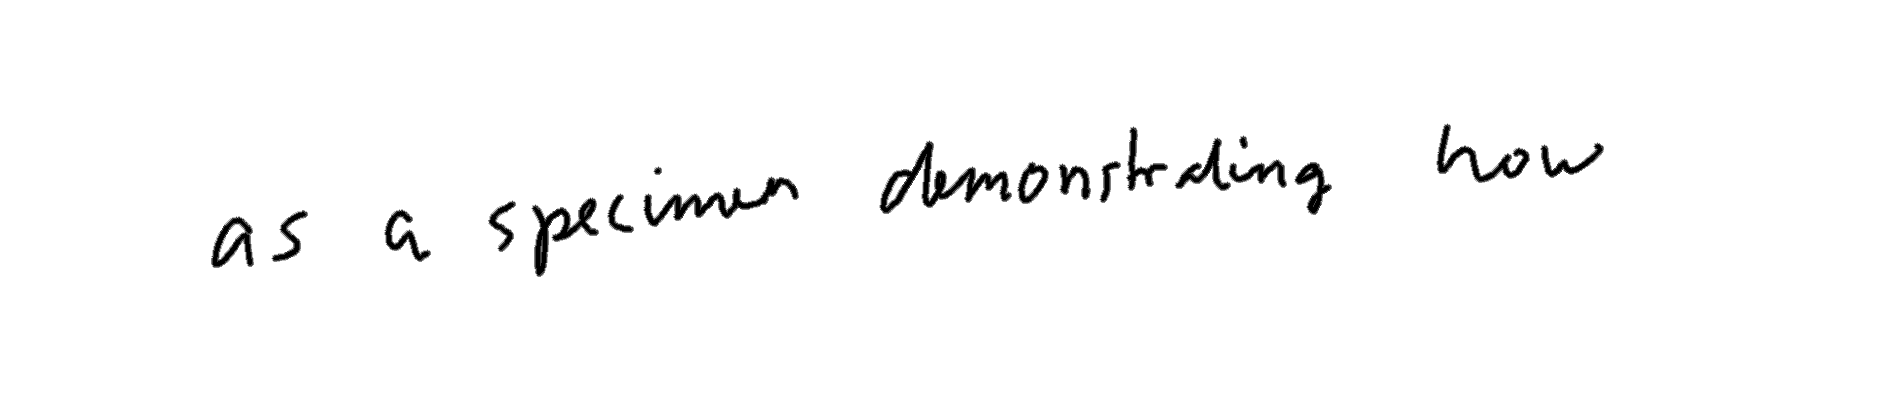 as a specimen demonstrating how